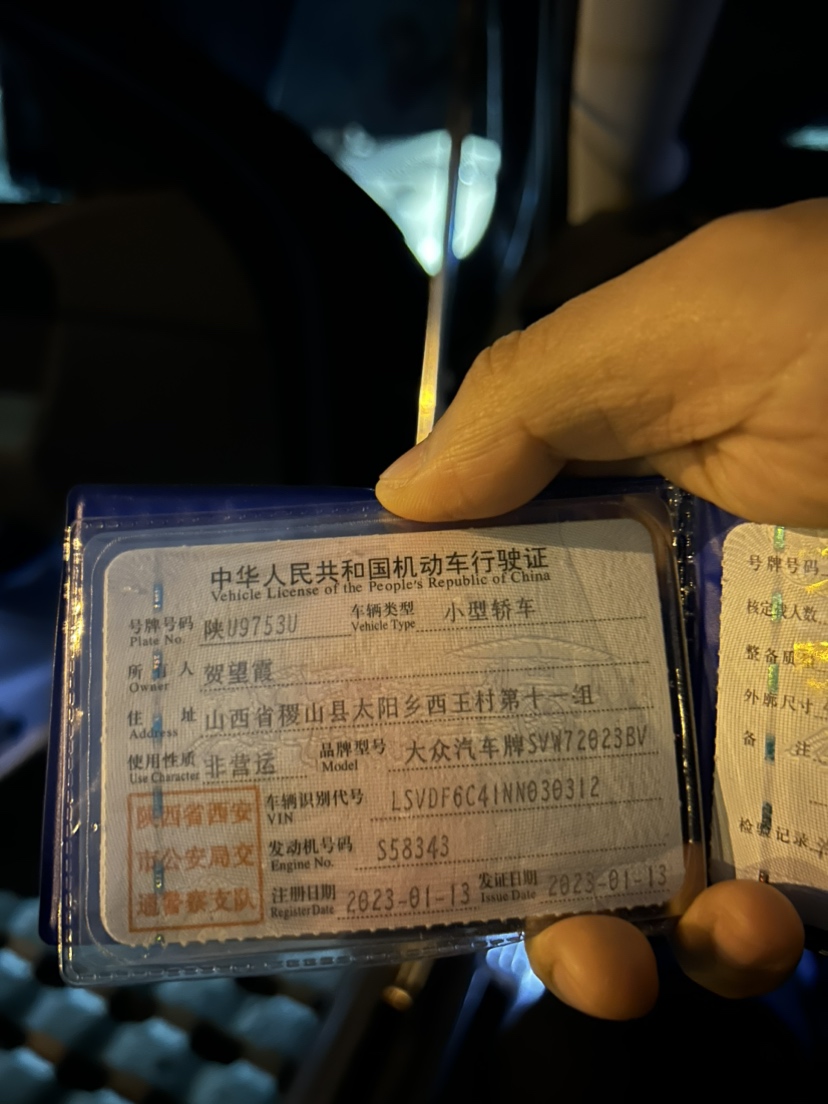 中华人民共和国机动车行驶证
Vehicle License of the People's Republic of China
号牌号码 陕U9753U 车辆类型 小型轿车
Plate No. Vehicle Type
所有人 贺望霞
Owner
住址 山西省稷山县太阳乡西王村第十一组
Address
使用性质 非营运 品牌型号 大众汽车牌SVW72023BV
Use Character Model
车辆识别代号 LSVDF6C41NN030312
VIN
发动机号码 S58343
Engine No.
注册日期 2023-01-13 发证日期 2023-01-13
Register Date Issue Date
陕西省西安
市公安局交
通警察支队
号牌号码
核定载人数
整备质
外廓尺寸
备注
检验记录